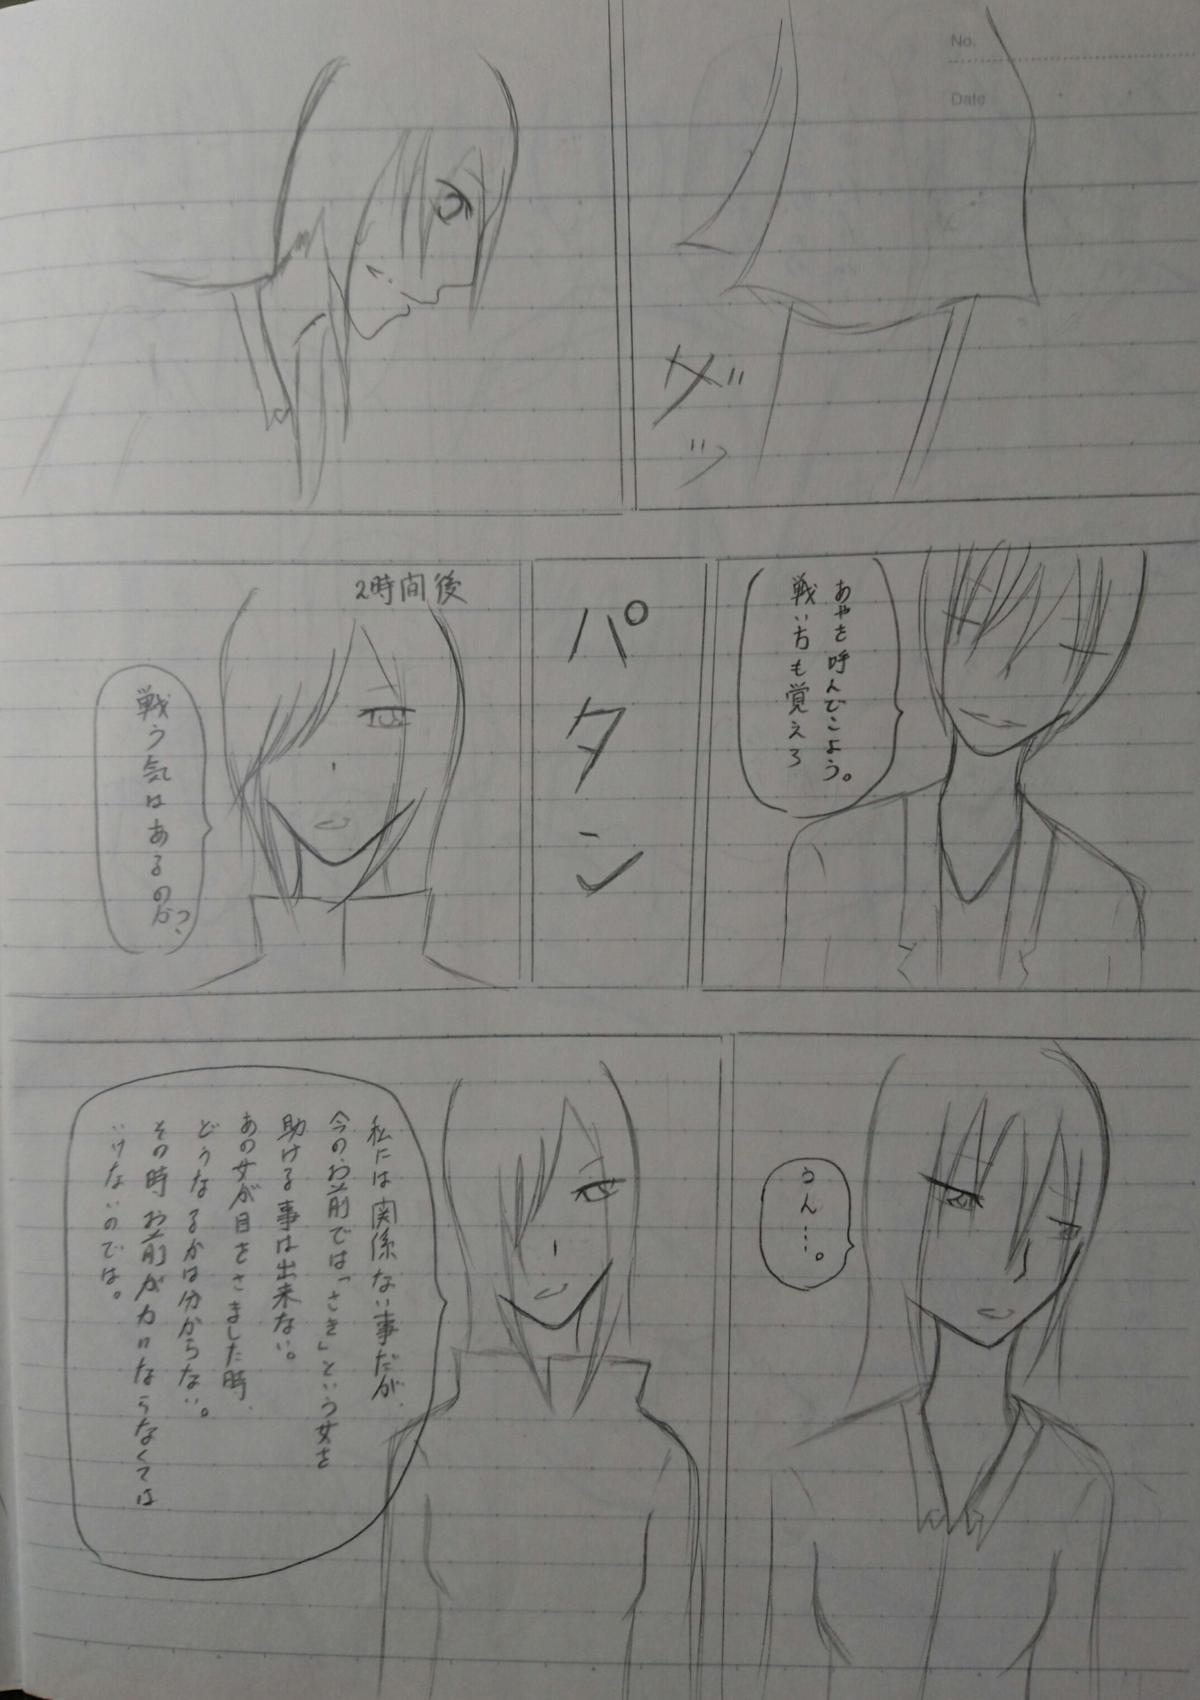 No.
Date
ダッ
あやを呼んでこよう。
戦い方も覚えろ
パタン
2時間後
戦う気はあるのか?
うん…。
私には関係ない事だが、
今のお前では「さき」という女を
助ける事は出来ない。
あの女が目をさました時、
どうなるかは分からない。
その時お前が力にならなくては
いけないのでは。